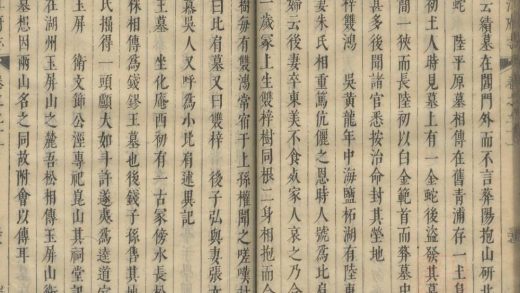 云績墓在閶門外而不言葬陽抱山研北
蛇 陸平原墓相傳在舊青浦存一土阜
初王人時見墓上有一金蛇後盜發其墓
間一狹而長陸初以白金範首而葬墓中
甚多後聞諸官悉按治命封其塋地
梓雙鴻 吳黃龍年中海鹽柘湖有陸東
妻朱氏相重篤伉儷之恩時人號為比肩
婦云後妻卒東美不食死家人哀之乃合
一歲冢上生雙梓樹同根二身相抱而合
樹每有雙鴻常宿于上孫權聞之嗟嘆封
曰比肩墓又曰雙梓 後子弘與妻張亦
妻吳人又呼為小比肩述異記
王墓 坐化庵西初有一古冢傍水長松
株相傳為錢鏐王墓也後錢子孫售其地
氏掘得一頭顱大如斗許遂夷為逵道宅
玉屏 衛文節公涇專祀崑山其祠堂記
在湖州玉屏山之麓吾松相傳玉屏山衛
墓想因兩山名之同故附會以傳耳